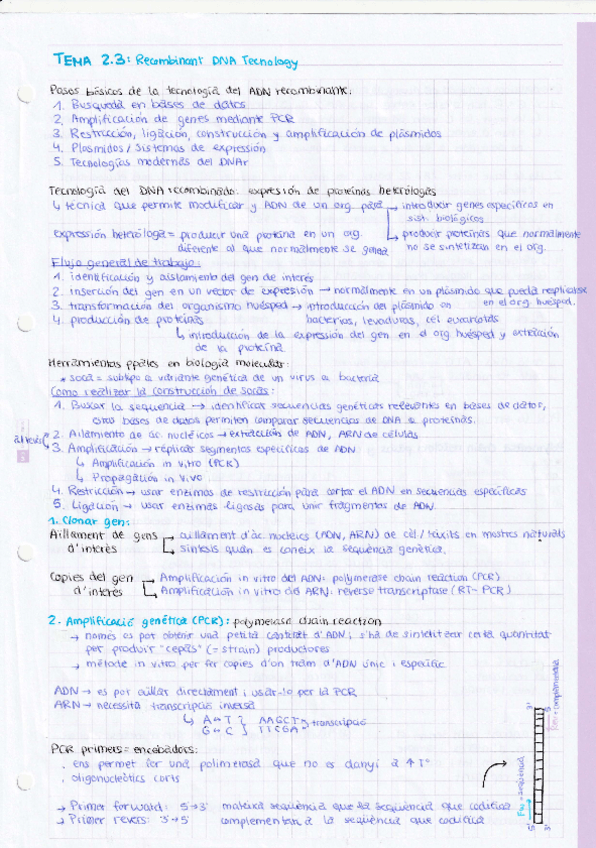 TEMA 2.3: Recombinant DNA Tecnology
Pasos básicos de la tecnología del ADN recombinante:
1. Busqueda en bases de datos
2. Amplificación de genes mediante PCR
3. Restricción, ligación, construcción y amplificación de plásmidos
4. Plasmidos / Sistemas de expresión
5. Tecnologías modernas del DNAr
Tecnología del DNA recombinado: expresión de proteínas heterólogas
↳ técnica que permite modificar y ADN de un org. para → introducir genes específicos en
sist. biológicos
expresión heteróloga = producir una proteína en un org. → producir proteínas que normalmente
diferente al que normalmente se genera no se sintetizan en el org.
Flujo general de trabajo:
1. identificación y aislamiento del gen de interés
2. inserción del gen en un vector de expresión → normalmente en un plásmido que pueda replicarse
en el org. huésped.
3. transformación del organismo huésped → introducción del plásmido en
bacterias, levaduras, cél eucariotas
4. producción de proteínas
↳ introducción de la expresión del gen en el org huésped y extración
de la proteína
Herramientas ppales en biología molecular:
* soca = subtipo o variante genética de un virus o bacteria
Como realizar la construcción de socas:
1. Buscar la sequencia → identificar secuencias genéticas relevantes en bases de datos,
otras bases de datos permiten comparar secuencias de DNA o proteinas.
2. Ailamiento de ác. nucleicos → extracción de ADN, ARN de células
3. Amplificación → réplicar segmentos específicos de ADN
↳ Amplificación in vitro (PCR)
↳ Propagación in vivo
4. Restricción → usar enzimas de restricción para cortar el ADN en secuencias específicas
5. Ligación → usar enzimas ligasas para unir fragmentos de ADN.
1. Clonar gen:
Aïllament de gens → aïllament d'àc. nucleics (ADN, ARN) de cèl / teixits en mostres naturals
d'interès → síntesis quan es coneix la seqüència genètica.
Copies del gen → Amplificación in vitro del ADN: polymerase chain reaction (PCR)
d'interès → Amplificación in vitro del ARN: reverse transcriptase (RT-PCR)
2. Amplificació genètica (PCR): polymerase chain reaction
→ només es pot obtenir una petita cantitat d'ADN i s'ha de sintetitzar certa quantitat
per produir "cepas" (= strain) productores
→ mètode in vitro per fer copies d'on tram d'ADN únic i específic
ADN → es pot aïllar directament i usar-lo per la PCR
ARN → necessita transcripció inversa
↳ A ↔ T ] AAGCT ] transcripció
G ↔ C ] TTCGA
PCR primers = encebadors:
. ens permet fer una polimerasa que no es danyi a ↑ Tº
. oligonucleòtics corts
→ Primer forward: 5'→3' mateixa seqüència que la seqüència que codifica
→ Primer revers: 3'→5' complementari a la seqüència que codifica
3' 5'
Rev = complementària
Fw = seqüència
5' 3'